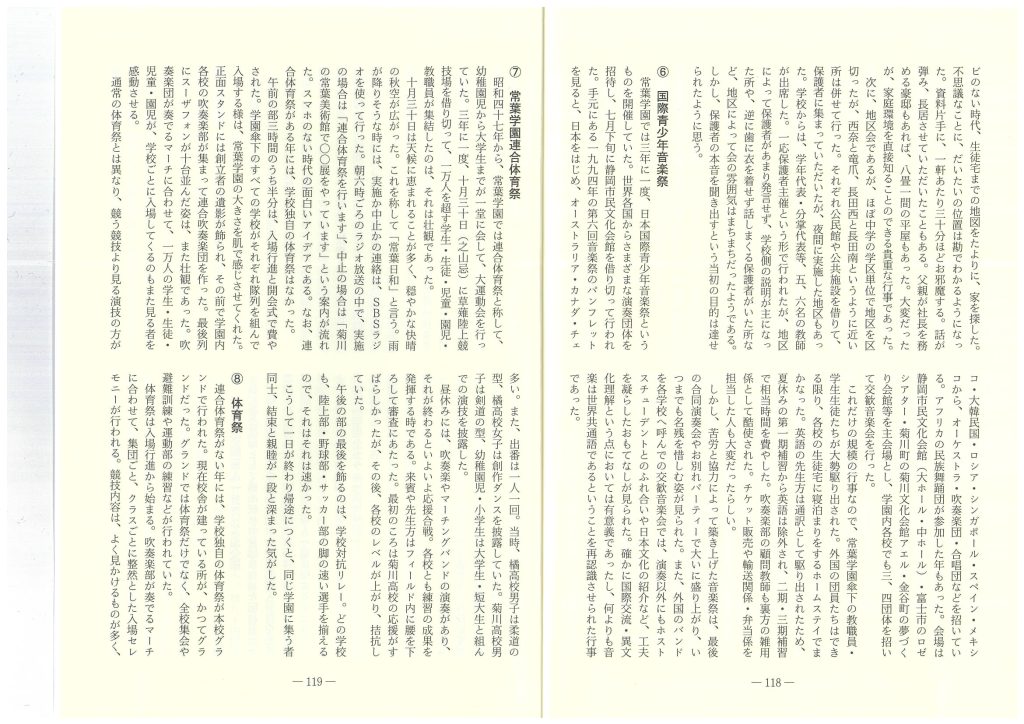 ビのない時代、生徒宅までの地図をたよりに、家を探した。
不思議なことに、だいたいの位置は勘でわかるようになっ
た。資料片手に、一軒あたり三十分ほどお邪魔する。話が
弾み、長居させていただいたこともある。父親が社長を務
める豪邸もあれば、八畳一間の平屋もあった。大変だった
が、家庭環境を直接知ることのできる貴重な行事であった。
次に、地区会であるが、ほぼ中学の学区単位で地区を区
切ったが、西奈と竜爪、長田西と長田南というように近い
所は併せて行った。それぞれ公民館や公共施設を借りて、
保護者に集まっていただいたが、夜間に実施した地区もあっ
た。学校からは、学年代表・分掌代表等、五、六名の教師
が出席した。一応保護者主催という形で行われたが、地区
によって保護者があまり発言せず、学校側の説明が主になっ
た所や、逆に歯に衣を着せず話しまくる保護者がいた所な
ど、地区によって会の雰囲気はまちまちだったようである。
しかし、保護者の本音を聞き出すという当初の目的は達せ
られたように思う。
⑥ 国際青少年音楽祭
常葉学園では三年に一度、日本国際青少年音楽祭という
ものを開催していた。世界各国からさまざまな演奏団体を
招待し、七月下旬に静岡市民文化会館を借り切って行われ
た。手元にある一九九四年の第六回音楽祭のパンフレット
を見ると、日本をはじめ、オーストラリア・カナダ・チェ
コ・大韓民国・ロシア・シンガポール・スペイン・メキシ
コから、オーケストラ・吹奏楽団・合唱団などを招いてい
る。アフリカの民族舞踊団が参加した年もあった。会場は
静岡市民文化会館（大ホール・中ホール）・富士市のロゼ
シアター・菊川町の菊川文化会館アエル・金谷町の夢づく
り会館等を主会場とし、学園内各校でも三、四団体を招い
て交歓音楽会を行った。
これだけの規模の行事なので、常葉学園傘下の教職員・
学生生徒たちが大勢駆り出された。外国の団員たちはでき
る限り、各校の生徒宅に寝泊まりをするホームステイでま
かなった。英語の先生方は通訳として駆り出されたため、
夏休みの第一期補習から英語は除外され、二期・三期補習
で相当時間を費やした。吹奏楽部の顧問教師も裏方の雑用
係として酷使された。チケット販売や輸送関係・弁当係を
担当した人も大変だったらしい。
しかし、苦労と協力によって築き上げた音楽祭は、最後
の合同演奏会やお別れパーティーで大いに盛り上がり、い
つまでも名残を惜しむ姿が見られた。また、外国のバンド
を各学校へ呼んでの交歓音楽会では、演奏以外にもホスト
スチューデントとのふれ合いや日本文化の紹介など、工夫
を凝らしたおもてなしが見られた。確かに国際交流・異文
化理解という点においては有意義であったし、何よりも音
楽は世界共通語であるということを再認識させられた行事
であった。
― 118 ―
⑦ 常葉学園連合体育祭
昭和四十七年から、常葉学園では連合体育祭と称して、
幼稚園児から大学生までが一堂に会して、大運動会を行っ
ていた。三年に一度、十月三十日（之山忌）に草薙陸上競
技場を借り切って、一万人を超す学生・生徒・児童・園児・
教職員が集結したのは、それは壮観であった。
十月三十日は天候に恵まれることが多く、穏やかな快晴
の秋空が広がった。これを称して「常葉日和」と言う。雨
が降りそうな時には、実施か中止かの連絡は、ＳＢＳラジ
オを使って行った。朝六時ごろのラジオ放送の中で、実施
の場合は「連合体育祭を行います」、中止の場合は「菊川
の常葉美術館で○○展をやっています」という案内が流れ
た。スマホのない時代の面白いアイデアである。なお、連
合体育祭がある年には、学校独自の体育祭はなかった。
午前の部三時間のうち半分は、入場行進と開会式で費や
された。学園傘下のすべての学校がそれぞれ隊列を組んで
入場する様は、常葉学園の大きさを肌で感じさせてくれた。
正面スタンドには創立者の遺影が飾られ、その前で学園内
各校の吹奏楽部が集まって連合吹奏楽団を作った。最後列
にスーザフォンが十台並んだ姿は、また壮観であった。吹
奏楽団が奏でるマーチに合わせて、一万人の学生・生徒・
児童・園児が、学校ごとに入場してくるのもまた見る者を
感動させる。
通常の体育祭とは異なり、競う競技より見る演技の方が
多い。また、出番は一人一回。当時、橘高校男子は柔道の
型、橘高校女子は創作ダンスを披露していた。菊川高校男
子は剣道の型、幼稚園児・小学生は大学生・短大生と組ん
での演技を披露した。
昼休みには、吹奏楽やマーチングバンドの演奏があり、
それが終わるといよいよ応援合戦。各校とも練習の成果を
発揮する時である。来賓や先生方はフィールド内に腰を下
ろして審査にあたった。最初のころは菊川高校の応援がす
ばらしかったが、その後、各校のレベルが上がり、拮抗し
ていた。
午後の部の最後を飾るのは、学校対抗リレー。どの学校
も、陸上部・野球部・サッカー部の脚の速い選手を揃える
ので、それはそれは速かった。
こうして一日が終わり帰途につくと、同じ学園に集う者
同士、結束と親睦が一段と深まった気がした。
⑧ 体育祭
連合体育祭がない年には、学校独自の体育祭が本校グラ
ンドで行われた。現在校舎が建っている所が、かつてグラ
ンドだった。グランドでは体育祭だけでなく、全校集会や
避難訓練や運動部の練習などが行われていた。
体育祭は入場行進から始まる。吹奏楽部が奏でるマーチ
に合わせて、集団ごと、クラスごとに整然とした入場セレ
モニーが行われる。競技内容は、よく見かけるものが多く、
― 119 ―